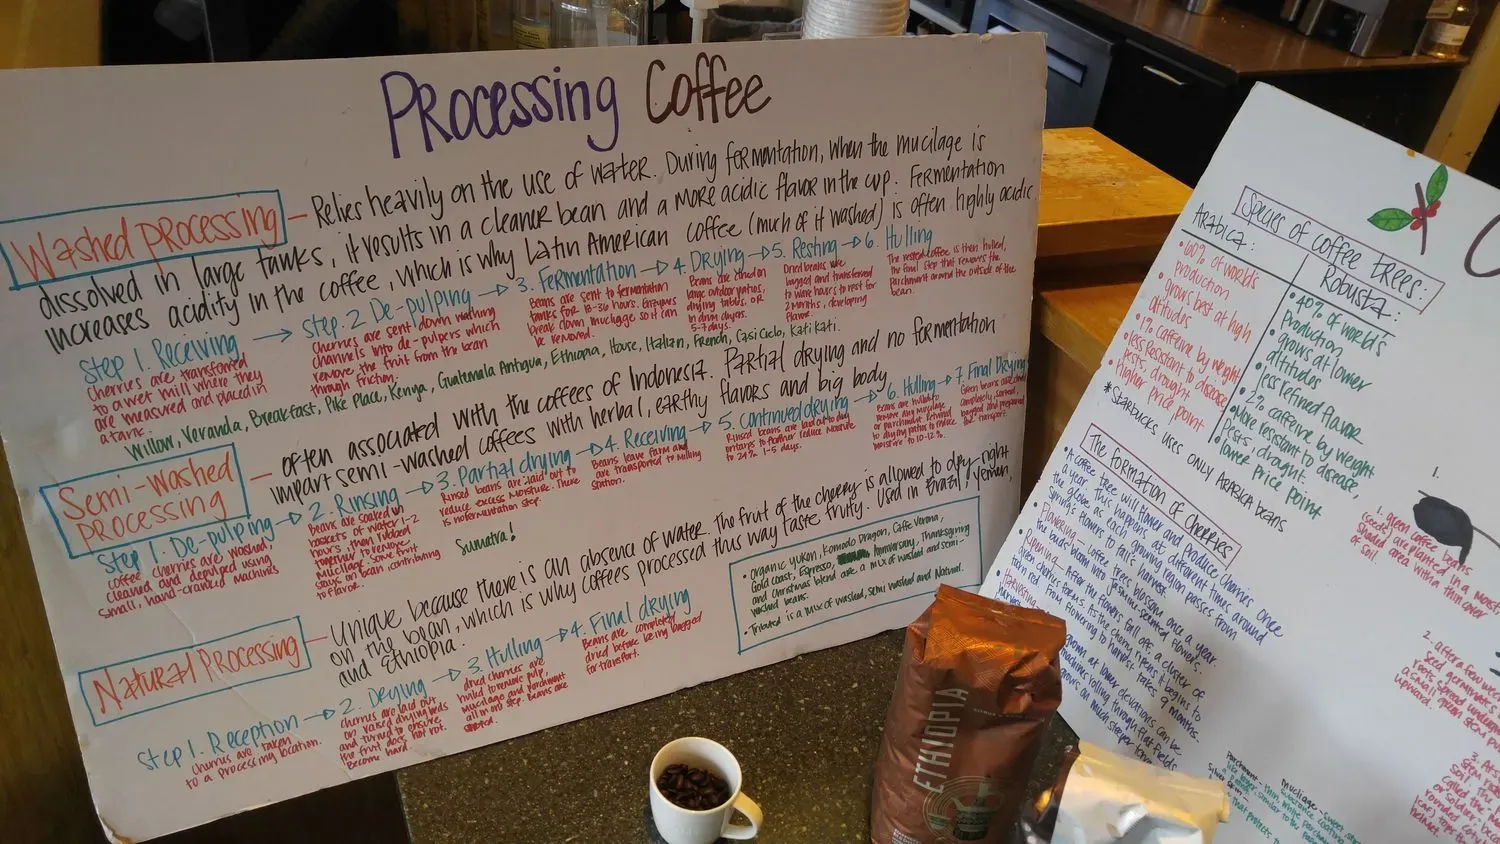 Processing Coffee
Washed Processing – Relies heavily on the use of water. During fermentation, when the mucilage is
dissolved in large tanks, it results in a cleaner bean and a more acidic flavor in the cup. Fermentation
increases acidity in the coffee, which is why Latin American coffee (much of it washed) is often highly acidic
Step 1. Receiving → Step. 2 De-pulping → 3. Fermentation → 4. Drying → 5. Resting → 6. Hulling
Cherries are transferred
to a wet mill where they
are measured and placed in
a tank.
Cherries are sent down washing
channels into de-pulpers which
remove the fruit from the bean
through friction.
Beans are sent to fermentation
tanks for 18-36 hours. Enzymes
break down mucilage so it can
be removed.
Beans are dried on
large outdoor patios,
drying tables, or
in drum dryers.
5-7 days.
Dried beans are
bagged and transferred
to warehouses to rest for
2 months, developing
flavor.
The rested coffee is then hulled,
the final step that removes the
parchment around the outside of the
bean.
Willow, Veranda, Breakfast, Pike Place, Kenya, Guatemala Antigua, Ethiopia, House, Italian, French, Casi Cielo, Kati Kati.
Semi-Washed
Processing – often associated with the coffees of Indonesia. Partial drying and no fermentation
impart semi-washed coffees with herbal, earthy flavors and big body
Step 1. De-pulping → 2. Rinsing → 3. Partial drying → 4. Receiving → 5. Continued drying → 6. Hulling → 7. Final Drying
coffee cherries are washed,
cleaned and depulped using
small, hand-cranked machines
Beans are soaked in
baskets of water 1-2
hours, than rubbed
together to remove
mucilage. Some fruit
stays on bean, contributing
to flavor.
Rinsed beans are laid out to
reduce excess moisture. There
is no fermentation step.
Beans leave farm and
are transported to milling
station.
Rinsed beans are laid out to dry
on tarps to further reduce moisture
to 24% 1-5 days.
Beans are hulled to
remove any mucilage
or parchment, returned
to drying patios to reduce
moisture to 10-12%.
Green beans are dried
completely, sorted,
bagged and prepared
for transport.
Sumatra!
Natural Processing – Unique because there is an absence of water. The fruit of the cherry is allowed to dry right
on the bean, which is why coffees processed this way taste fruity. Used in Brazil, Yemen,
and Ethiopia.
Step 1. Reception → 2. Drying → 3. Hulling → 4. Final drying
cherries are taken
to a processing location.
cherries are laid out
on raised drying beds
and turned to ensure
the fruit does not rot.
Become hard.
dried cherries are
hulled to remove pulp,
mucilage and parchment
all in one step. Beans are
Beans are completely
dried before being bagged
for transport.
• Organic Yukon, Komodo Dragon, Caffe Verona,
Gold coast, Espresso, Anniversary, Thanksgiving
and Christmas blend are a mix of washed and semi-
washed beans.
• Tribute is a mix of washed, semi washed and Natural.
ETHIOPIA
Species of Coffee Trees:
Arabica:
• 60% of world's
production
• grows best at high
altitudes
• 1% caffeine by weight
• less Resistant to disease
pests, drought
• Higher
price point
* Starbucks uses only Arabica beans
Robusta:
• 40% of world's
production
• grows at lower
altitudes
• less Refined flavor
• 2% caffeine by weight
• More resistant to disease,
pests, draught
• lower price point
The formation of cherries
• A coffee tree will flower and produce cherries once
a year. This happens at different times around
the globe as each growing region passes from
spring's flowers to fall's harvest.
• Flowering - coffee trees blossom once a year.
The buds bloom into jasmine-scented flowers.
• Ripening - After the flowers fall off, a cluster of
green cherries forms. As the cherry ripens it begins to
turn red. From flowering to harvest takes 9 months.
• Harvesting
grown at lower elevations can be
machines rolling through flat fields
grows on much steeper
1. green coffee beans
(seeds) are planted in a moist
shaded area within
of soil.
2. after a few weeks
seed germinates
roots spread underground
a small green stem
upward.
3.
Parchment -
Mucilage - sweet,
Silver skin -